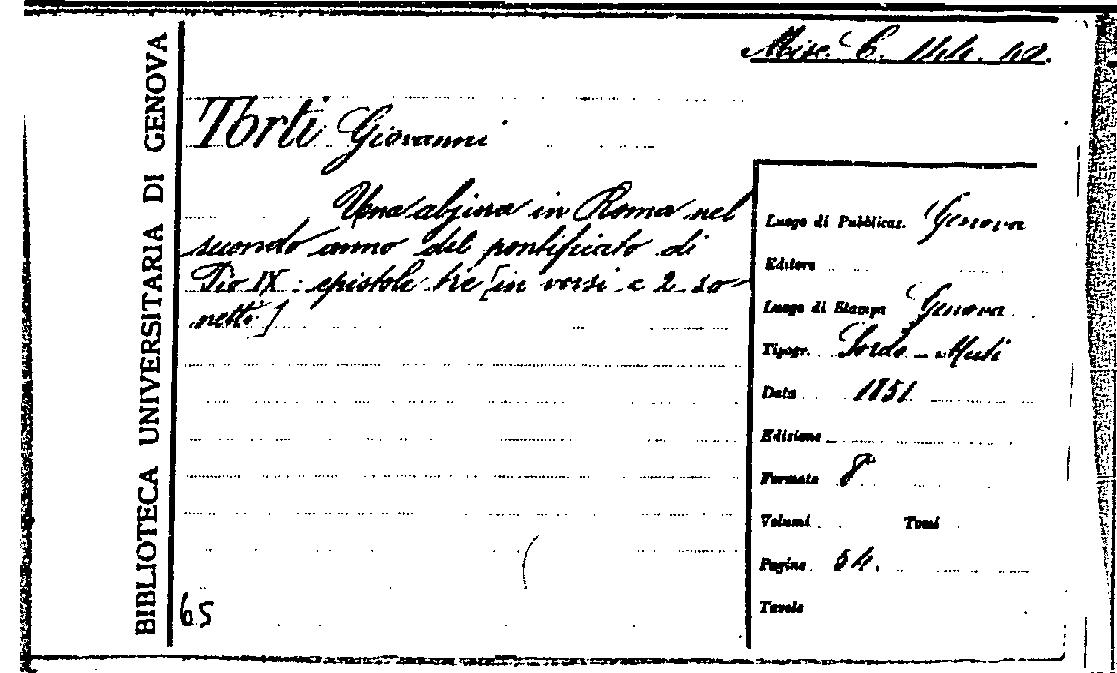 BIBLIOTECA UNIVERSITARIA DI GENOVA
Misc. C. 144. 40.
Torti Giovanni
Una abjura in Roma nel
secondo anno del pontificato di
Pio IX : epistole tre [in versi e 2 so-
netti]
Luogo di Pubblicaz. Genova
Editore
Luogo di Stampa Genova
Tipogr. Sordo-Muti
Data 1851
Edizione
Formato 8°
Volumi Tomi
Pagine 54.
Tavole
65